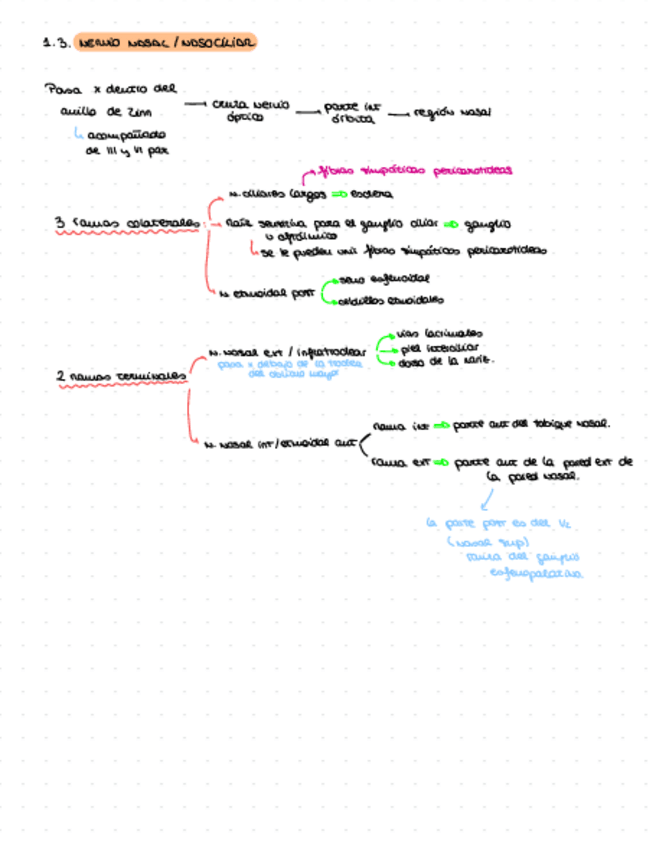 1.3. NERVIO NASAL / NASOCILIAR
Pasa x dentro del
anillo de Zinn → cruza nervio óptico → parte int órbita → región nasal
↳ acompañado
de III y VI par
fibras simpáticas pericarotídeas
N. ciliares largos ⇒ esclera
3 ramas colaterales: → Raíz sensitiva para el ganglio ciliar ⇒ ganglio
u oftálmico
↳ se le pueden unir fibras simpáticas pericarotídeas
N etmoidal post
seno esfenoidal
celdillas etmoidales
2 ramas terminales
N. nasal ext / infratroclear
pasa x debajo de la troclea
del oblicuo mayor
vías lacrimales
piel interciliar
dorso de la nariz.
N. nasal int/etmoidal ant
rama int ⇒ parte ant del tabique nasal.
rama ext ⇒ parte ant de la pared ext de
la pared nasal.
la parte post es del V2
(nasal sup)
rama del ganglio
esfenopalatino